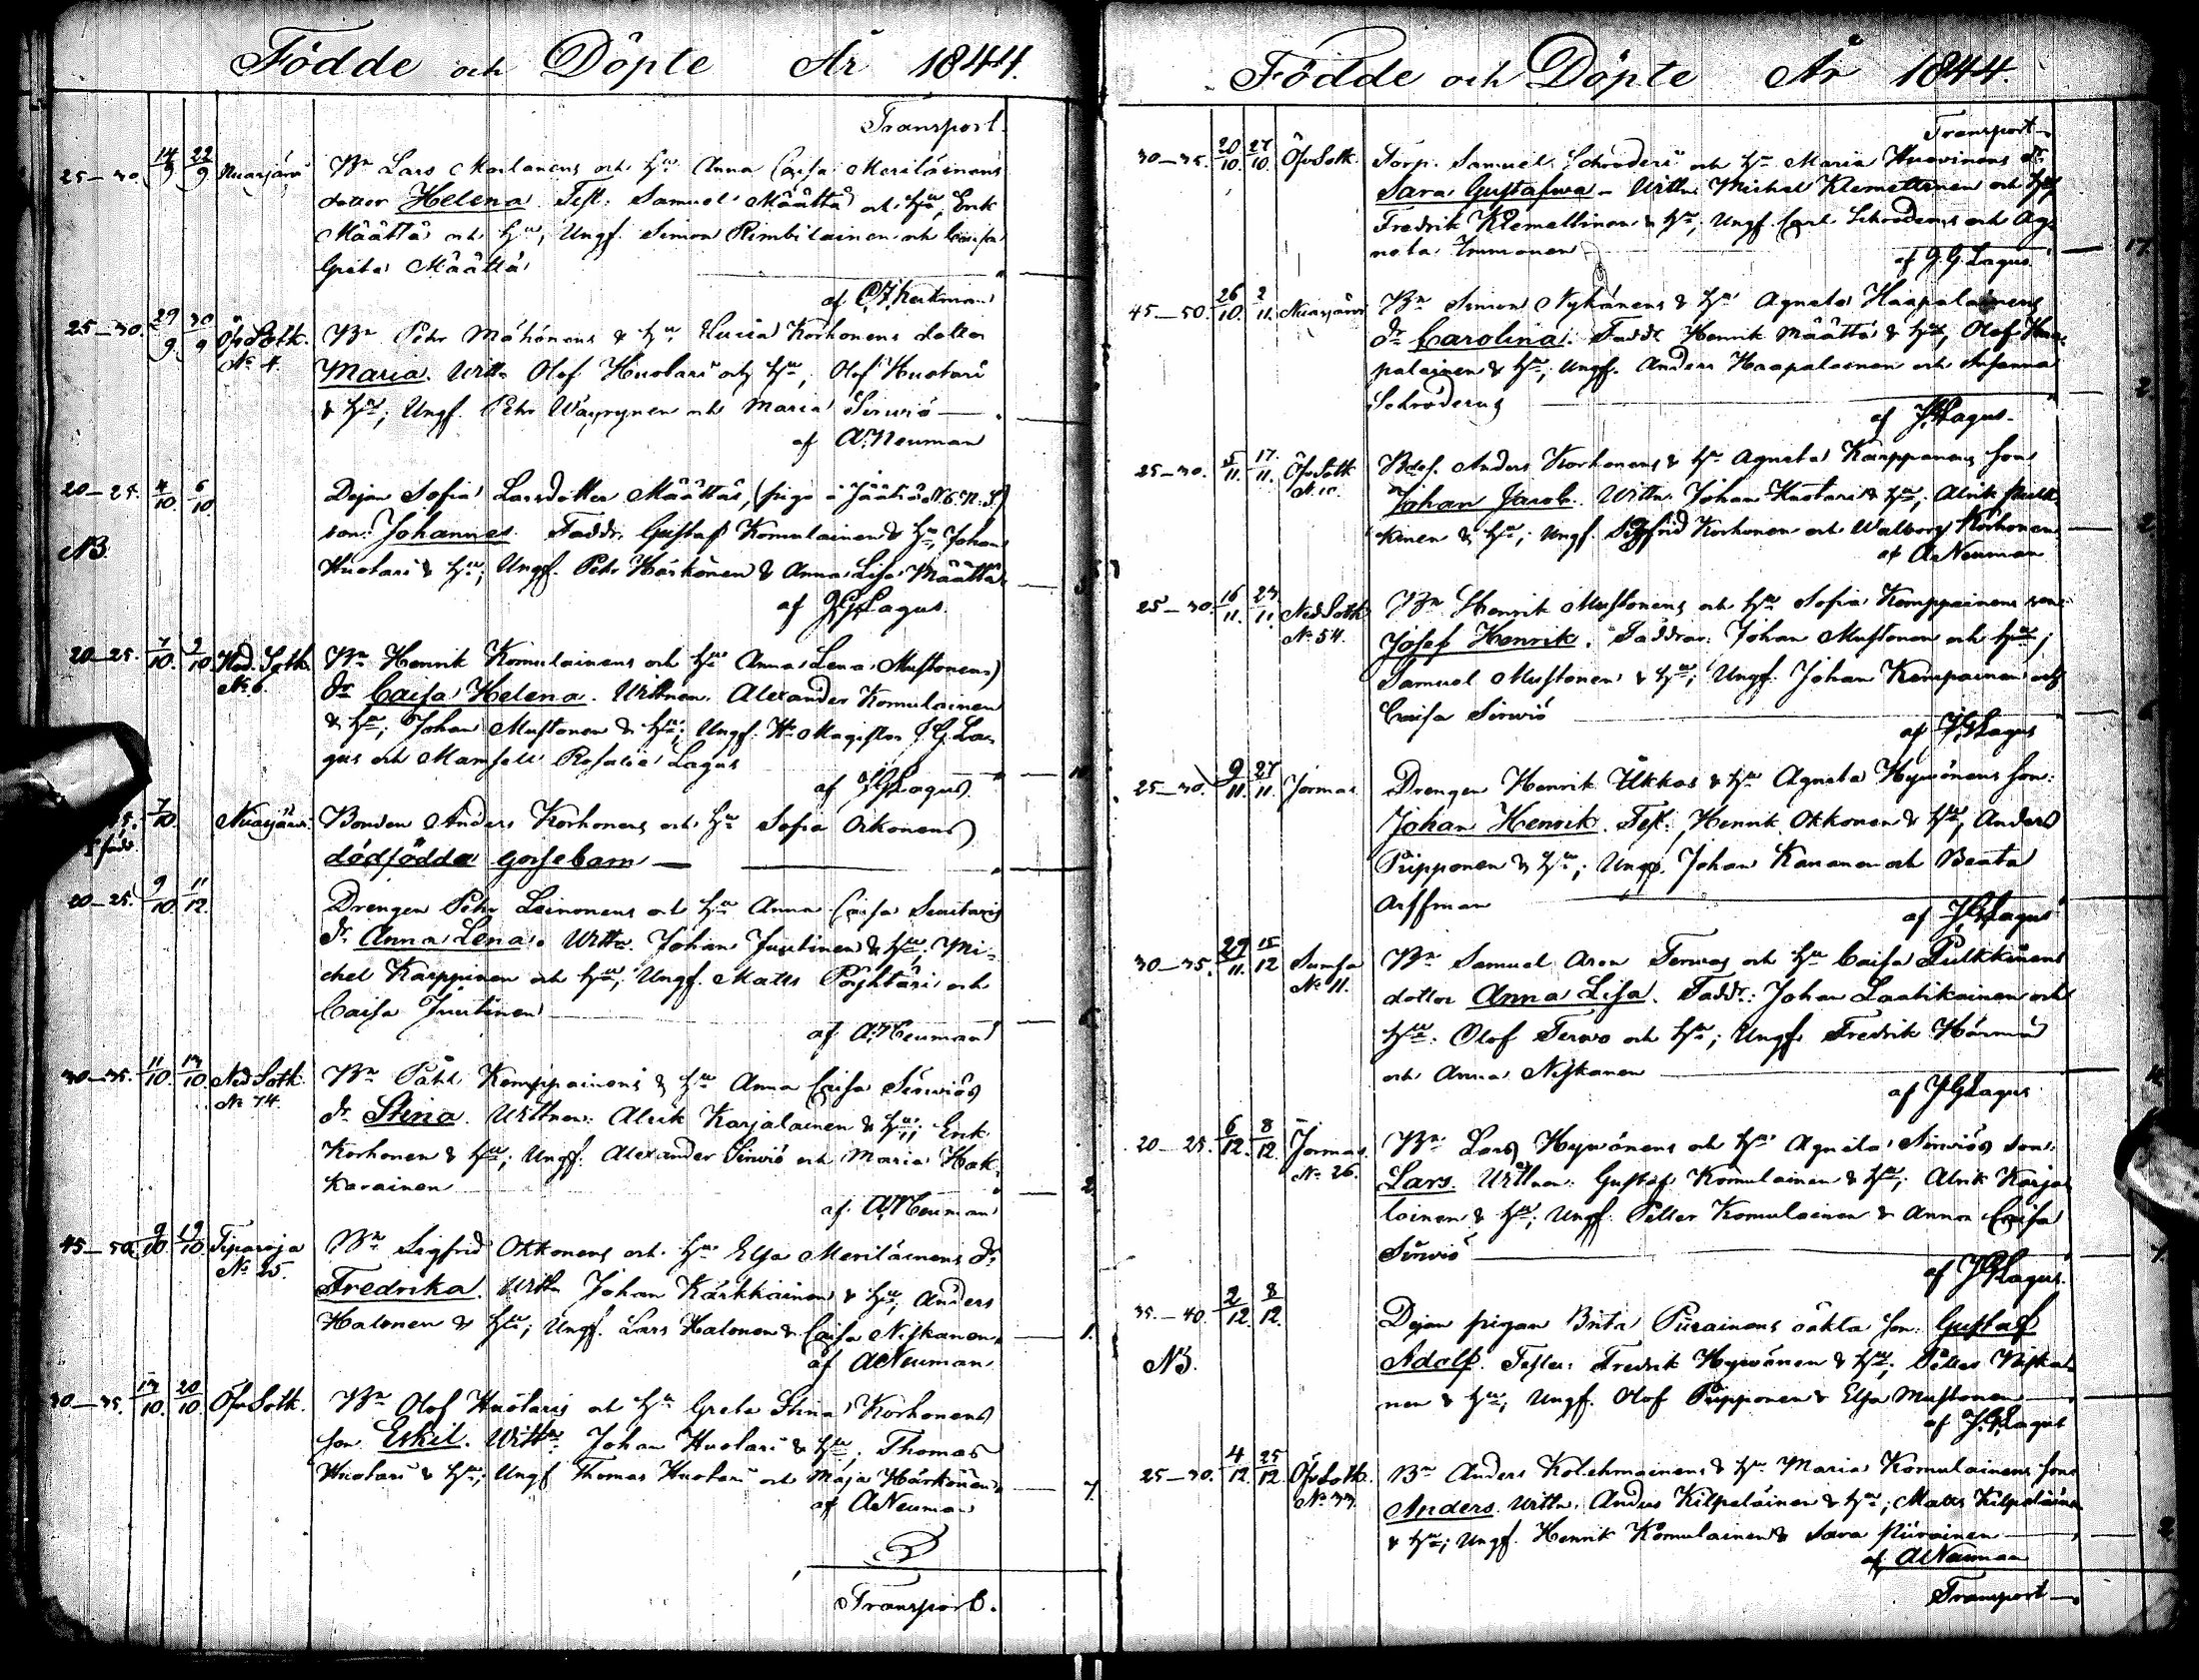 Födde och Döpte År 1844.
Transport.
25–30. 14/9 22/9 Nuasjärvi Bn Lars Moilanens och Hu Anna Caisa Meriläinens
dotter Helena. Test: Samuel Määttä och Hu, Erik
Määttä och Hu, Ungf. Simon Rimbiläinen och Caisa
Greta Määttä
af
25–30. 29/9 30/9 Öfv Sotk. Bn Pehr Möhönens & Hu Lucia Korhonens dotter
No 4.
Maria. Wittn Olof Huotari och Hu, Olof Huotari
& Hu; Ungf. Pehr Wäyrynen och Maria Sirwiö
af A. Neuman
20–25. 4/10 6/10 Dejan Sofia Larsdotter Määttäs, (piga å Jäätiö No 6 N. S.)
NB.
son: Johannes. Faddr. Gustaf Komulainen & Hu, Johan
Huotari & Hu; Ungf. Pehr Härkönen & Anna Lisa Määttä
af J G Lagus.
20–25. 7/10. 9/10. Ned. Sotk. Bn Henrik Komulainens och Hu Anna Lena Mustonens
No 6.
dr Caisa Helena. Wittnen. Alexander Komulainen
& Hu; Johan Mustonen & Hu; Ungf. Hr Magister J. G. La-
gus och Mamsell Rosalie Lagus
af J G Lagus.
7/10. Nuasjärvi. Bonden Anders Korhonens och Hu Sofia Oikonens
dödfödda gossebarn
20–25. 9/10. 11/12. Drengen Pehr Leinonens och Hu Anna Caisa
dr Anna Lena. Wittn. Johan Juutinen & Hu; Mi-
chel Karppinen och Hu; Ungf. Matts Pöyhtäri och
Caisa Juutinen
af A. Neuman
30–35. 11/10. 13/10. Ned Sotk. Bn Påhl Kemppainens & Hu Anna Caisa Sirwiös
No 74.
dr Stina. Wittnen: Alrik Karjalainen & Hu; Erik
Korhonen & Hu; Ungf. Alexander Sirwiö och Maria Hak-
karainen
2.
af A. Neuman
45–50. 9/10 19/10 Tipasoja Bn Sigfrid Okkonens och Hu Elsa Meriläinens dr
No 25.
Fredrika. Wittn Johan Kärkkäinen & Hu; Anders
Halonen & Hu; Ungf. Lars Halonen & Caisa Niskanen 1.
af A. Neuman.
30–35. 13/10. 20/10. Öfv Sotk. Bn Olof Huotaris och Hu Greta Stina Korhonens
son Eskil. Wittn. Johan Huotari & Hu; Thomas
Huotari & Hu; Ungf Thomas Huotari och Maja Härkönen 7.
af A Neuman
Transport.
Födde och Döpte År 1844.
Transport
30–35. 20/10. 27/10. Öfv Sotk. Torp. Samuel Schroderi och Hu Maria Huovinens dr
Sara Gustafwa – Wittn Michel Klemettinen och Hu
Fredrik Klemettinen & Hu; Ungf. Carl Schroderus och Ag-
neta Immonen 17.
af J. G. Lagus.
45–50. 26/10. 2/11. Nuasjärvi Bn Simon Nykänens & Hu Agneta Haapalainens
dr Carolina. Faddr Henrik Määttä & Hu, Olof Haa-
palainen & Hu; Ungf. Anders Haapalainen och Susanna
Schroderus 2
af J G Lagus.
25–30. 5/11. 17/11. Öfv Sotk Anders Korhonens & Hu Agneta Karppanens son
No 10.
Johan Jacob. Wittn. Johan Huotari & Hu; Alrik Pulk-
kinen & Hu; Ungf. Sigfrid Korhonen och Walborg Korhonen 2
af A. Neuman
25–30. 16/11. 23/11. Ned Sotk Bn Henrik Mustonens och Hu Sofia Kemppainens son
No 54.
Josef Henrik. Faddrar: Johan Mustonen och Hu;
Samuel Mustonen & Hu; Ungf. Johan Kempainen och
Caisa Sirwiö
af J G Lagus
25–30. 9/11. 27/11. Jormas Drengen Henrik Ukkos & Hu Agneta Hywönens son:
Johan Henrik. Test. Henrik Okkonen & Hu, Anders
Piipponen & Hu; Ungf. Johan Kananen och Beata
Arffman
af J G Lagus
30–35. 29/11. 15/12 Sumsa Bn Samuel Aron Terwos och Hu Caisa Pulkkinens
No 11.
dotter Anna Lisa. Faddr: Johan Laatikainen och
Hu. Olof Terwo och Hu; Ungf. Fredrik Härmä
och Anna Niskanen
af J G Lagus
20–25. 6/12. 8/12 Jormas. Bn Lars Hywönens och Hu Agneta Sirwiös son:
No 26.
Lars. Wittnen: Gustaf Komulainen & Hu; Alrik Karja-
lainen & Hu; Ungf. Petter Komulainen & Anna Caisa
Sirwiö 7.
af J G Lagus.
35–40. 2/12. 8/12. Dejan pigan Brita Piirainens oäkta son: Gustaf
NB.
Adolf. Testes: Fredrik Hywönen & Hu; Petter Niska-
nen & Hu; Ungf. Olof Piipponen & Elsa Mustonen
af J. G. Lagus
25–30. 4/12. 25/12. Öfv Sotk. Bn Anders Kolehmainens & Hu Maria Komulainens son
No 33.
Anders. Wittn. Anders Kilpeläinen & Hu; Matts Kilpeläinen
& Hu; Ungf. Henrik Komulainen & Sara Piirainen 2
af A Neuman
Transport